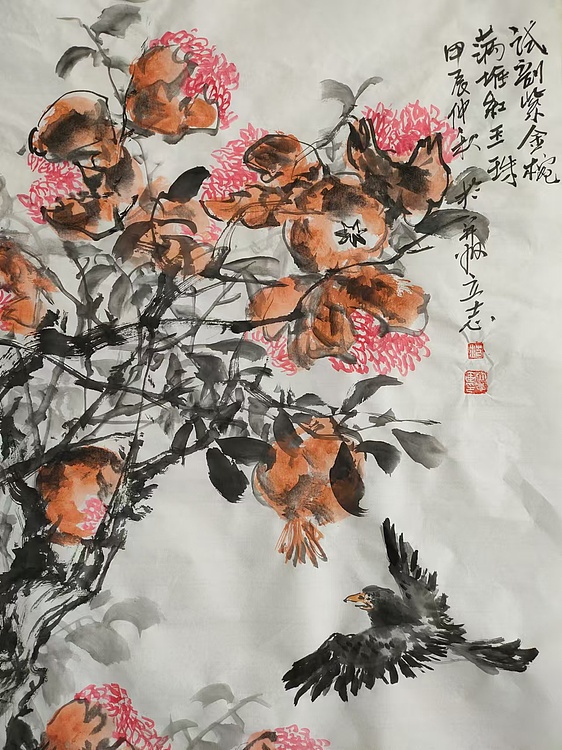 试剖紫金椀
满堆红玉珠
甲辰仲秋於并州立志